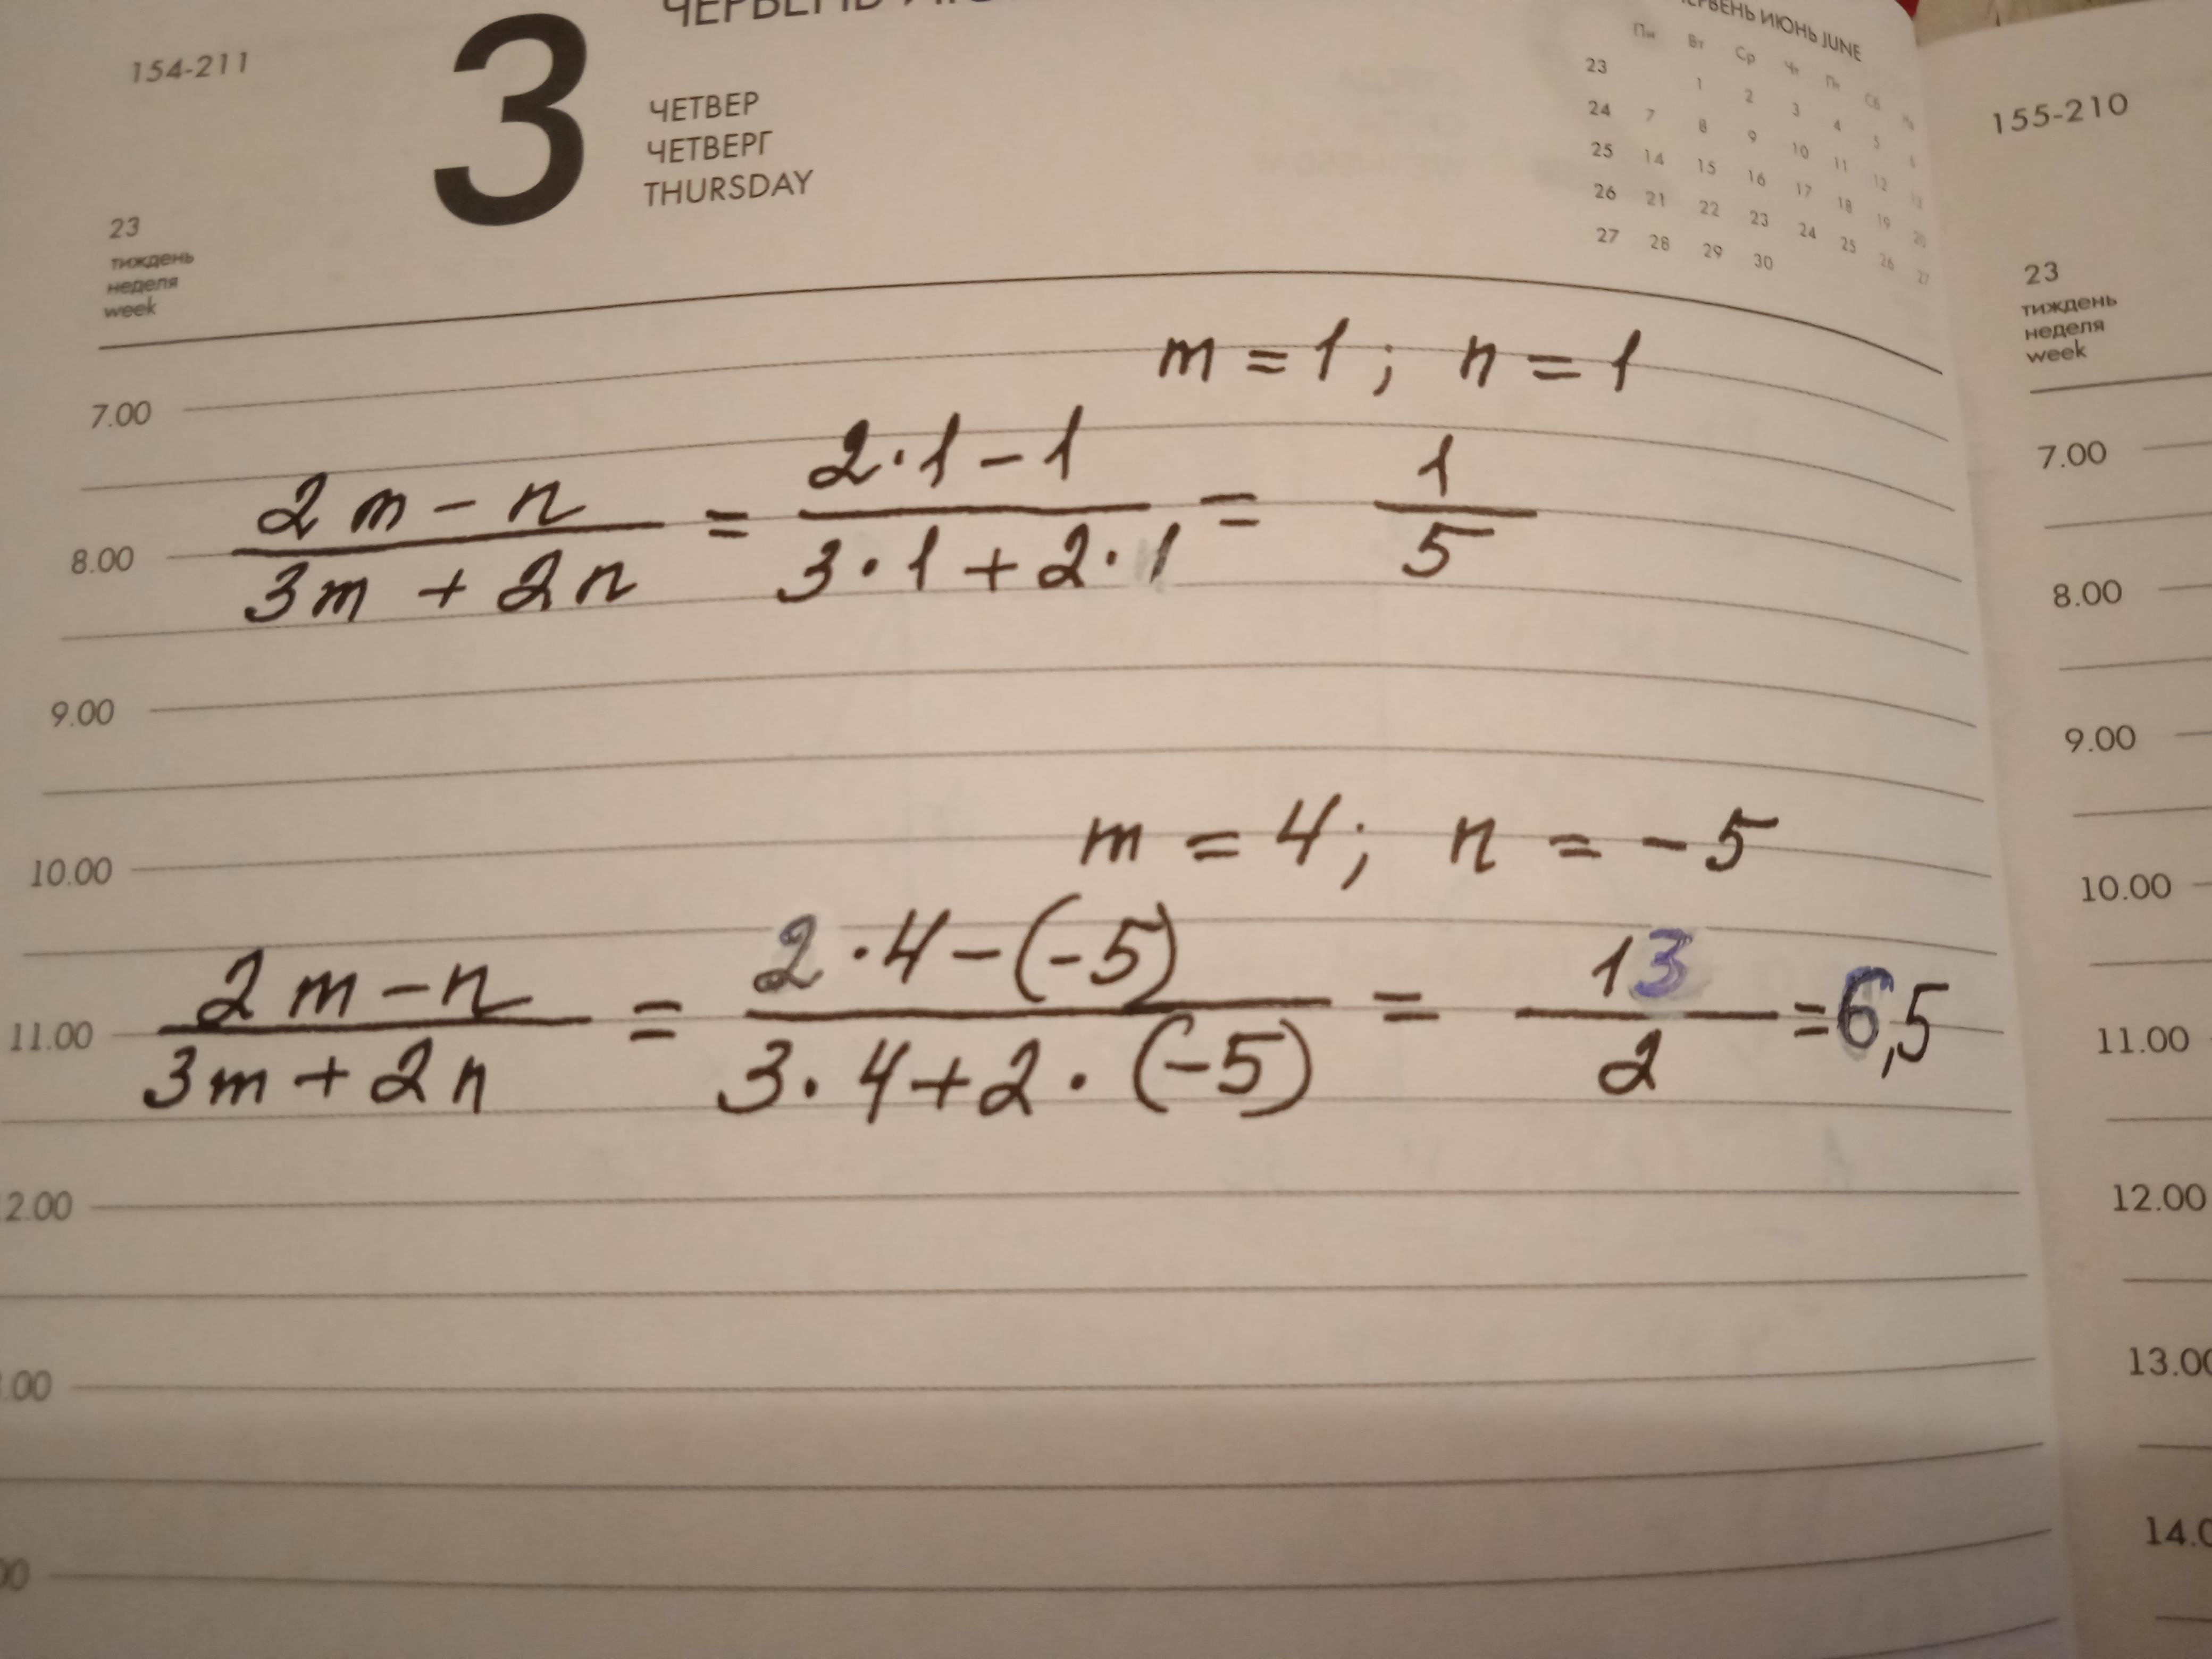 154-211
3
ЧЕТВЕР
ЧЕТВЕРГ
THURSDAY
23
тиждень
неделя
week
ЧЕРВЕНЬ ИЮНЬ JUNE
Пн Вт Ср Чт Пт Сб
23 1 2 3 4 5 6
24 7 8 9 10 11 12 13
25 14 15 16 17 18 19 20
26 21 22 23 24 25 26 27
27 28 29 30
m = 1 ; n = 1
7.00
(2m - n)/(3m + 2n) = (2·1 - 1)/(3·1 + 2·1) = 1/5
8.00
9.00
m = 4; n = -5
10.00
(2m - n)/(3m + 2n) = (2·4 - (-5))/(3·4 + 2·(-5)) = 13/2 = 6,5
11.00
2.00
.00
00
155-210
23
тиждень
неделя
week
7.00
8.00
9.00
10.00
11.00
12.00
13.00
14.0